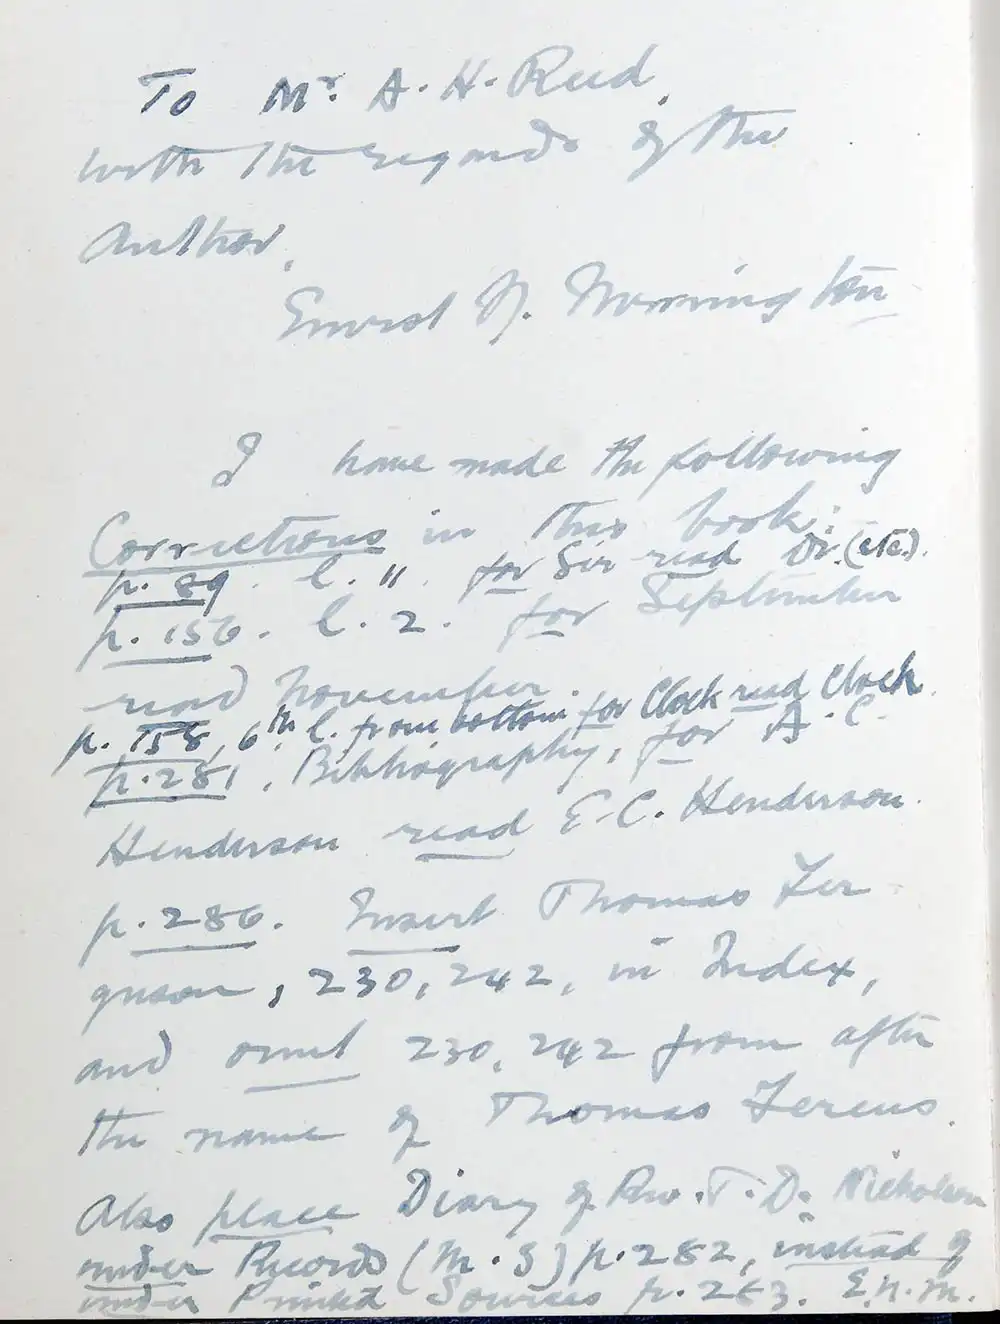 To Mr. A. H. Reed,
with the regards of the
Author,
Ernest N. Merrington
I have made the following
Corrections in this book:
p. 89. l. 11. for Sir read Dr. (etc.).
p. 156. l. 2. for September
read November.
p. 158, 6th l. from bottom for Clock read Cloch.
p. 281, Bibliography, for A. C.
Henderson read E. C. Henderson.
p. 286. Insert Thomas Fer
guson, 230, 242, in Index,
and omit 230, 242 from after
the name of Thomas Ferens.
Also place Diary of Rev. T. D. Nicholson
under Records (M.S) p. 282, instead of
under Printed Sources p. 283. E.N.M.